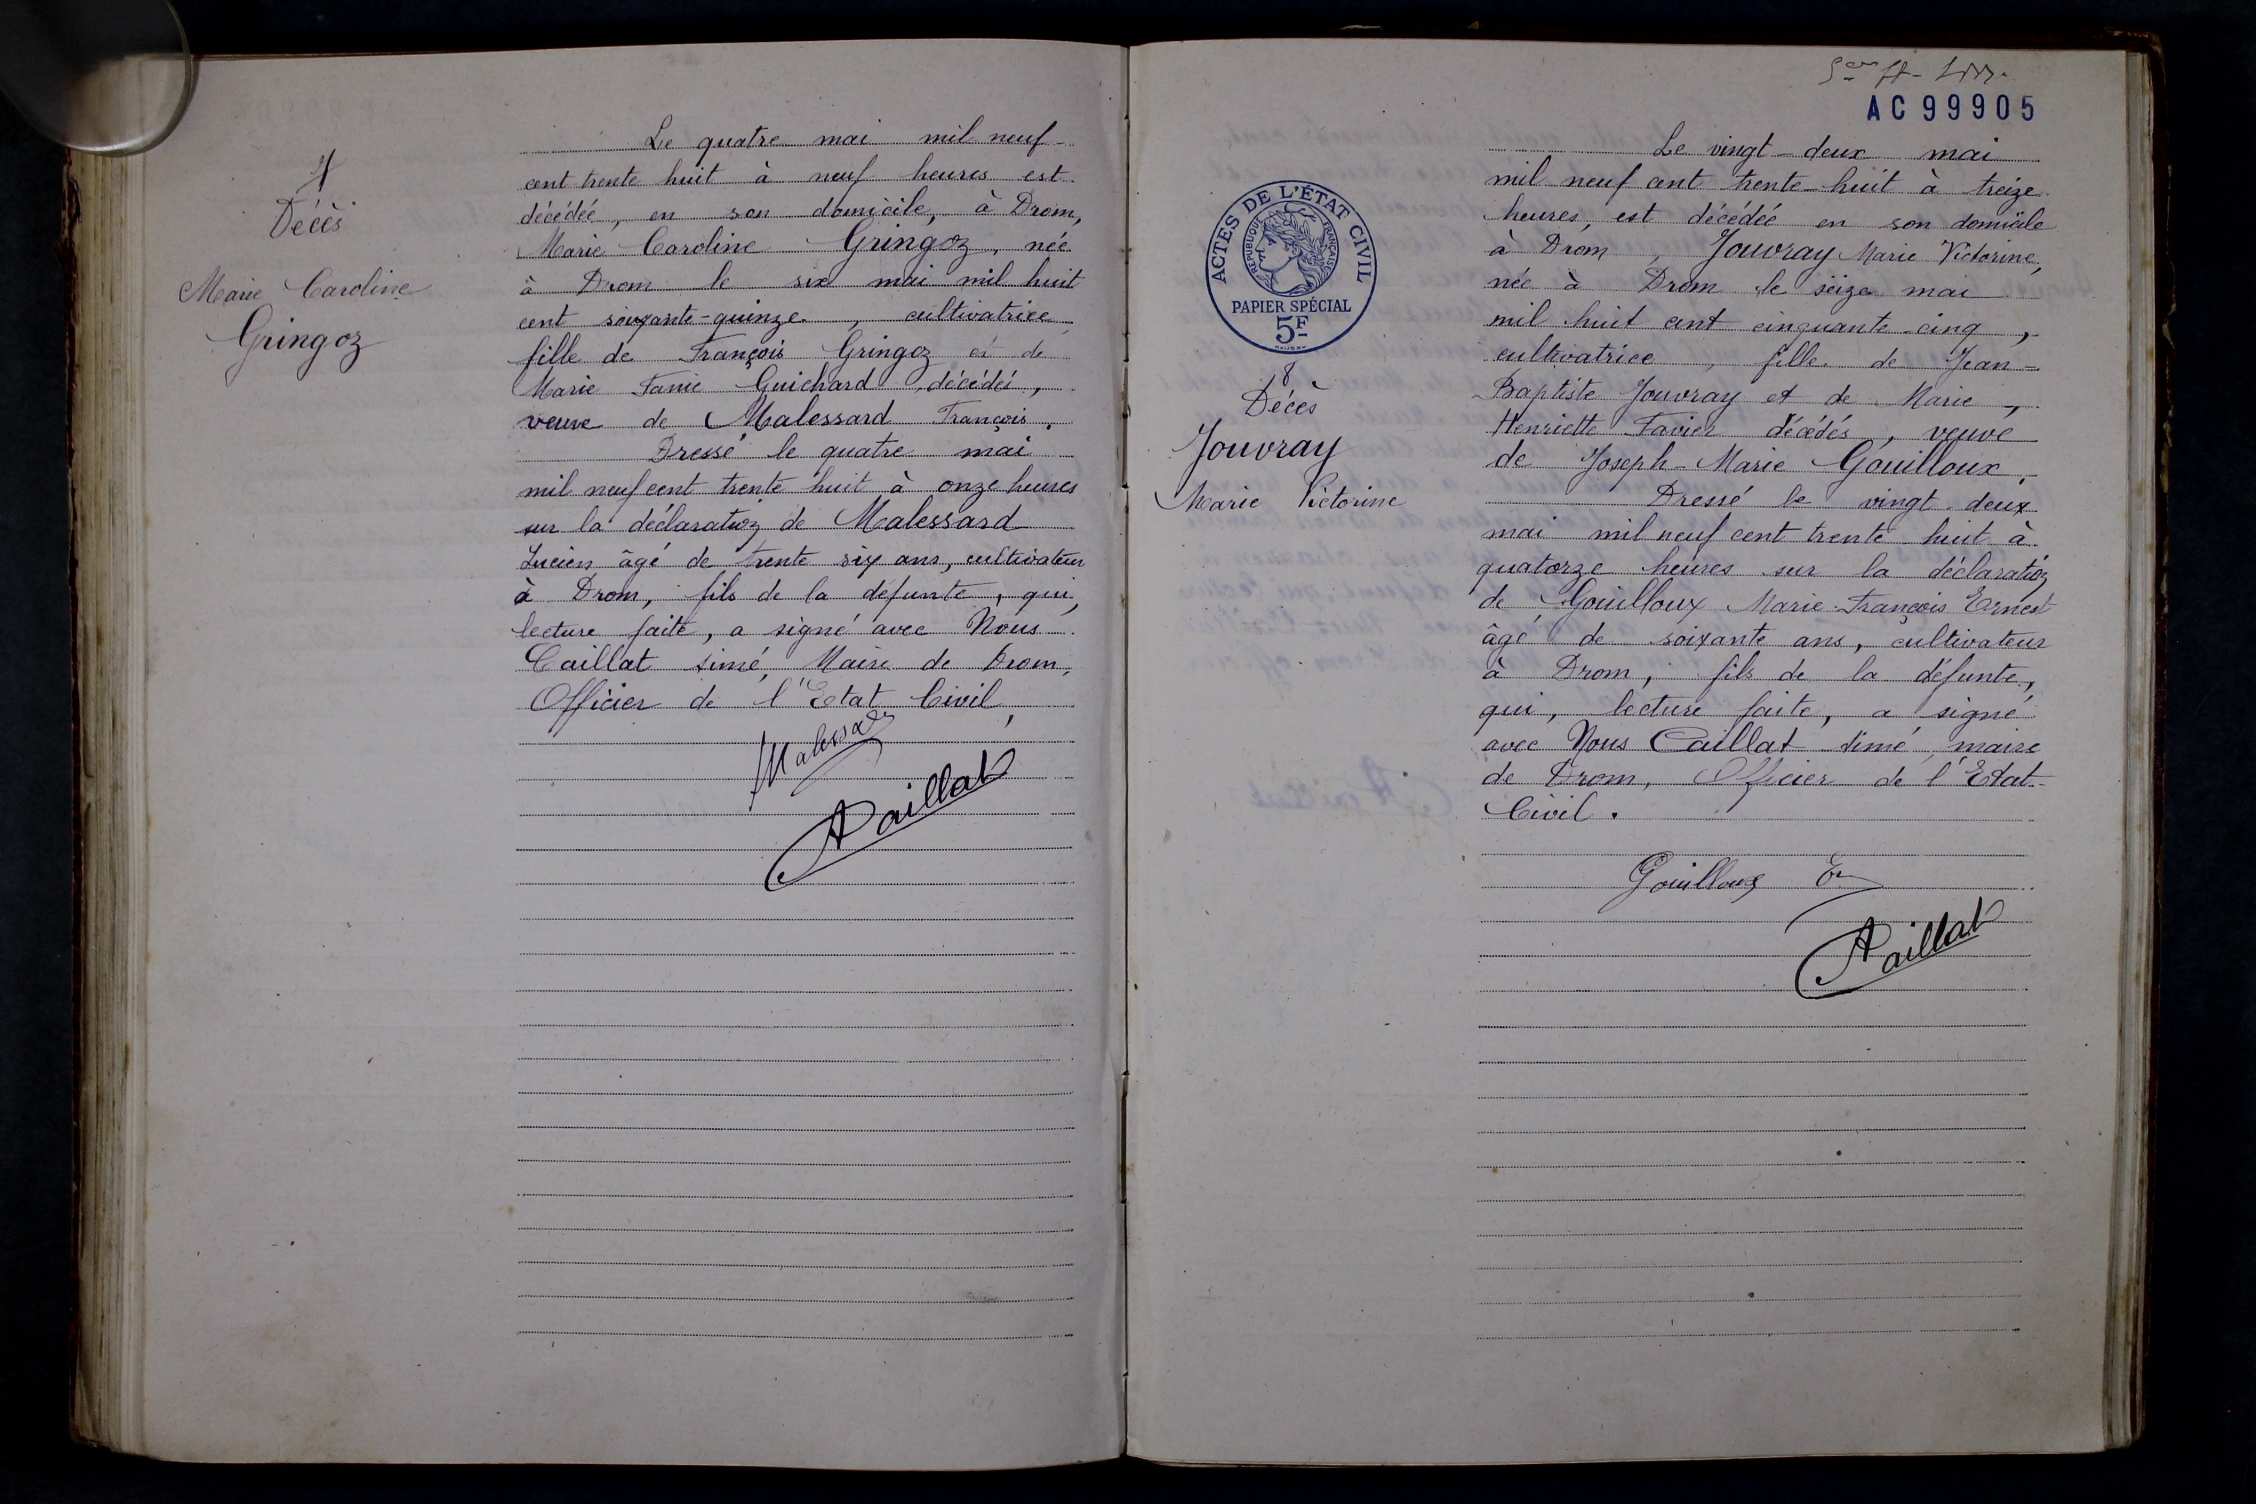 Décès
Marie Caroline
Gringoz
Le quatre mai mil neuf
cent trente huit à neuf heures est
décédée, en son domicile, à Drom,
Marie Caroline Gringoz, née
à Drom le six mai mil huit
cent soixante-quinze, cultivatrice
fille de François Gringoz et de
Marie Fanie Guichard, décédés,
veuve de Malessard François.
Dressé le quatre mai
mil neuf cent trente huit à onze heures
sur la déclaration de Malessard
Lucien âgé de trente six ans, cultivateur
à Drom, fils de la défunte, qui,
lecture faite, a signé avec Nous
Caillat Aimé, Maire de Drom,
Officier de l'Etat Civil,
Malessard
A Caillat
AC 99905
ACTES DE L'ÉTAT CIVIL
RÉPUBLIQUE FRANÇAISE
PAPIER SPÉCIAL
5F
8
Décès
Jouvray
Marie Victorine
Le vingt-deux mai
mil neuf cent trente-huit à treize
heures, est décédée en son domicile
à Drom, Jouvray Marie Victorine,
née à Drom le seize mai
mil huit cent cinquante-cinq,
cultivatrice, fille de Jean-
Baptiste Jouvray et de Marie-
Henriette Favier décédés, veuve
de Joseph-Marie Gouilloux.
Dressé le vingt-deux
mai mil neuf cent trente huit à
quatorze heures sur la déclaration
de Gouilloux Marie François Ernest
âgé de soixante ans, cultivateur
à Drom, fils de la défunte,
qui, lecture faite, a signé
avec Nous Caillat Aimé, maire
de Drom, Officier de l'Etat-
Civil.
Gouilloux Er
A Caillat